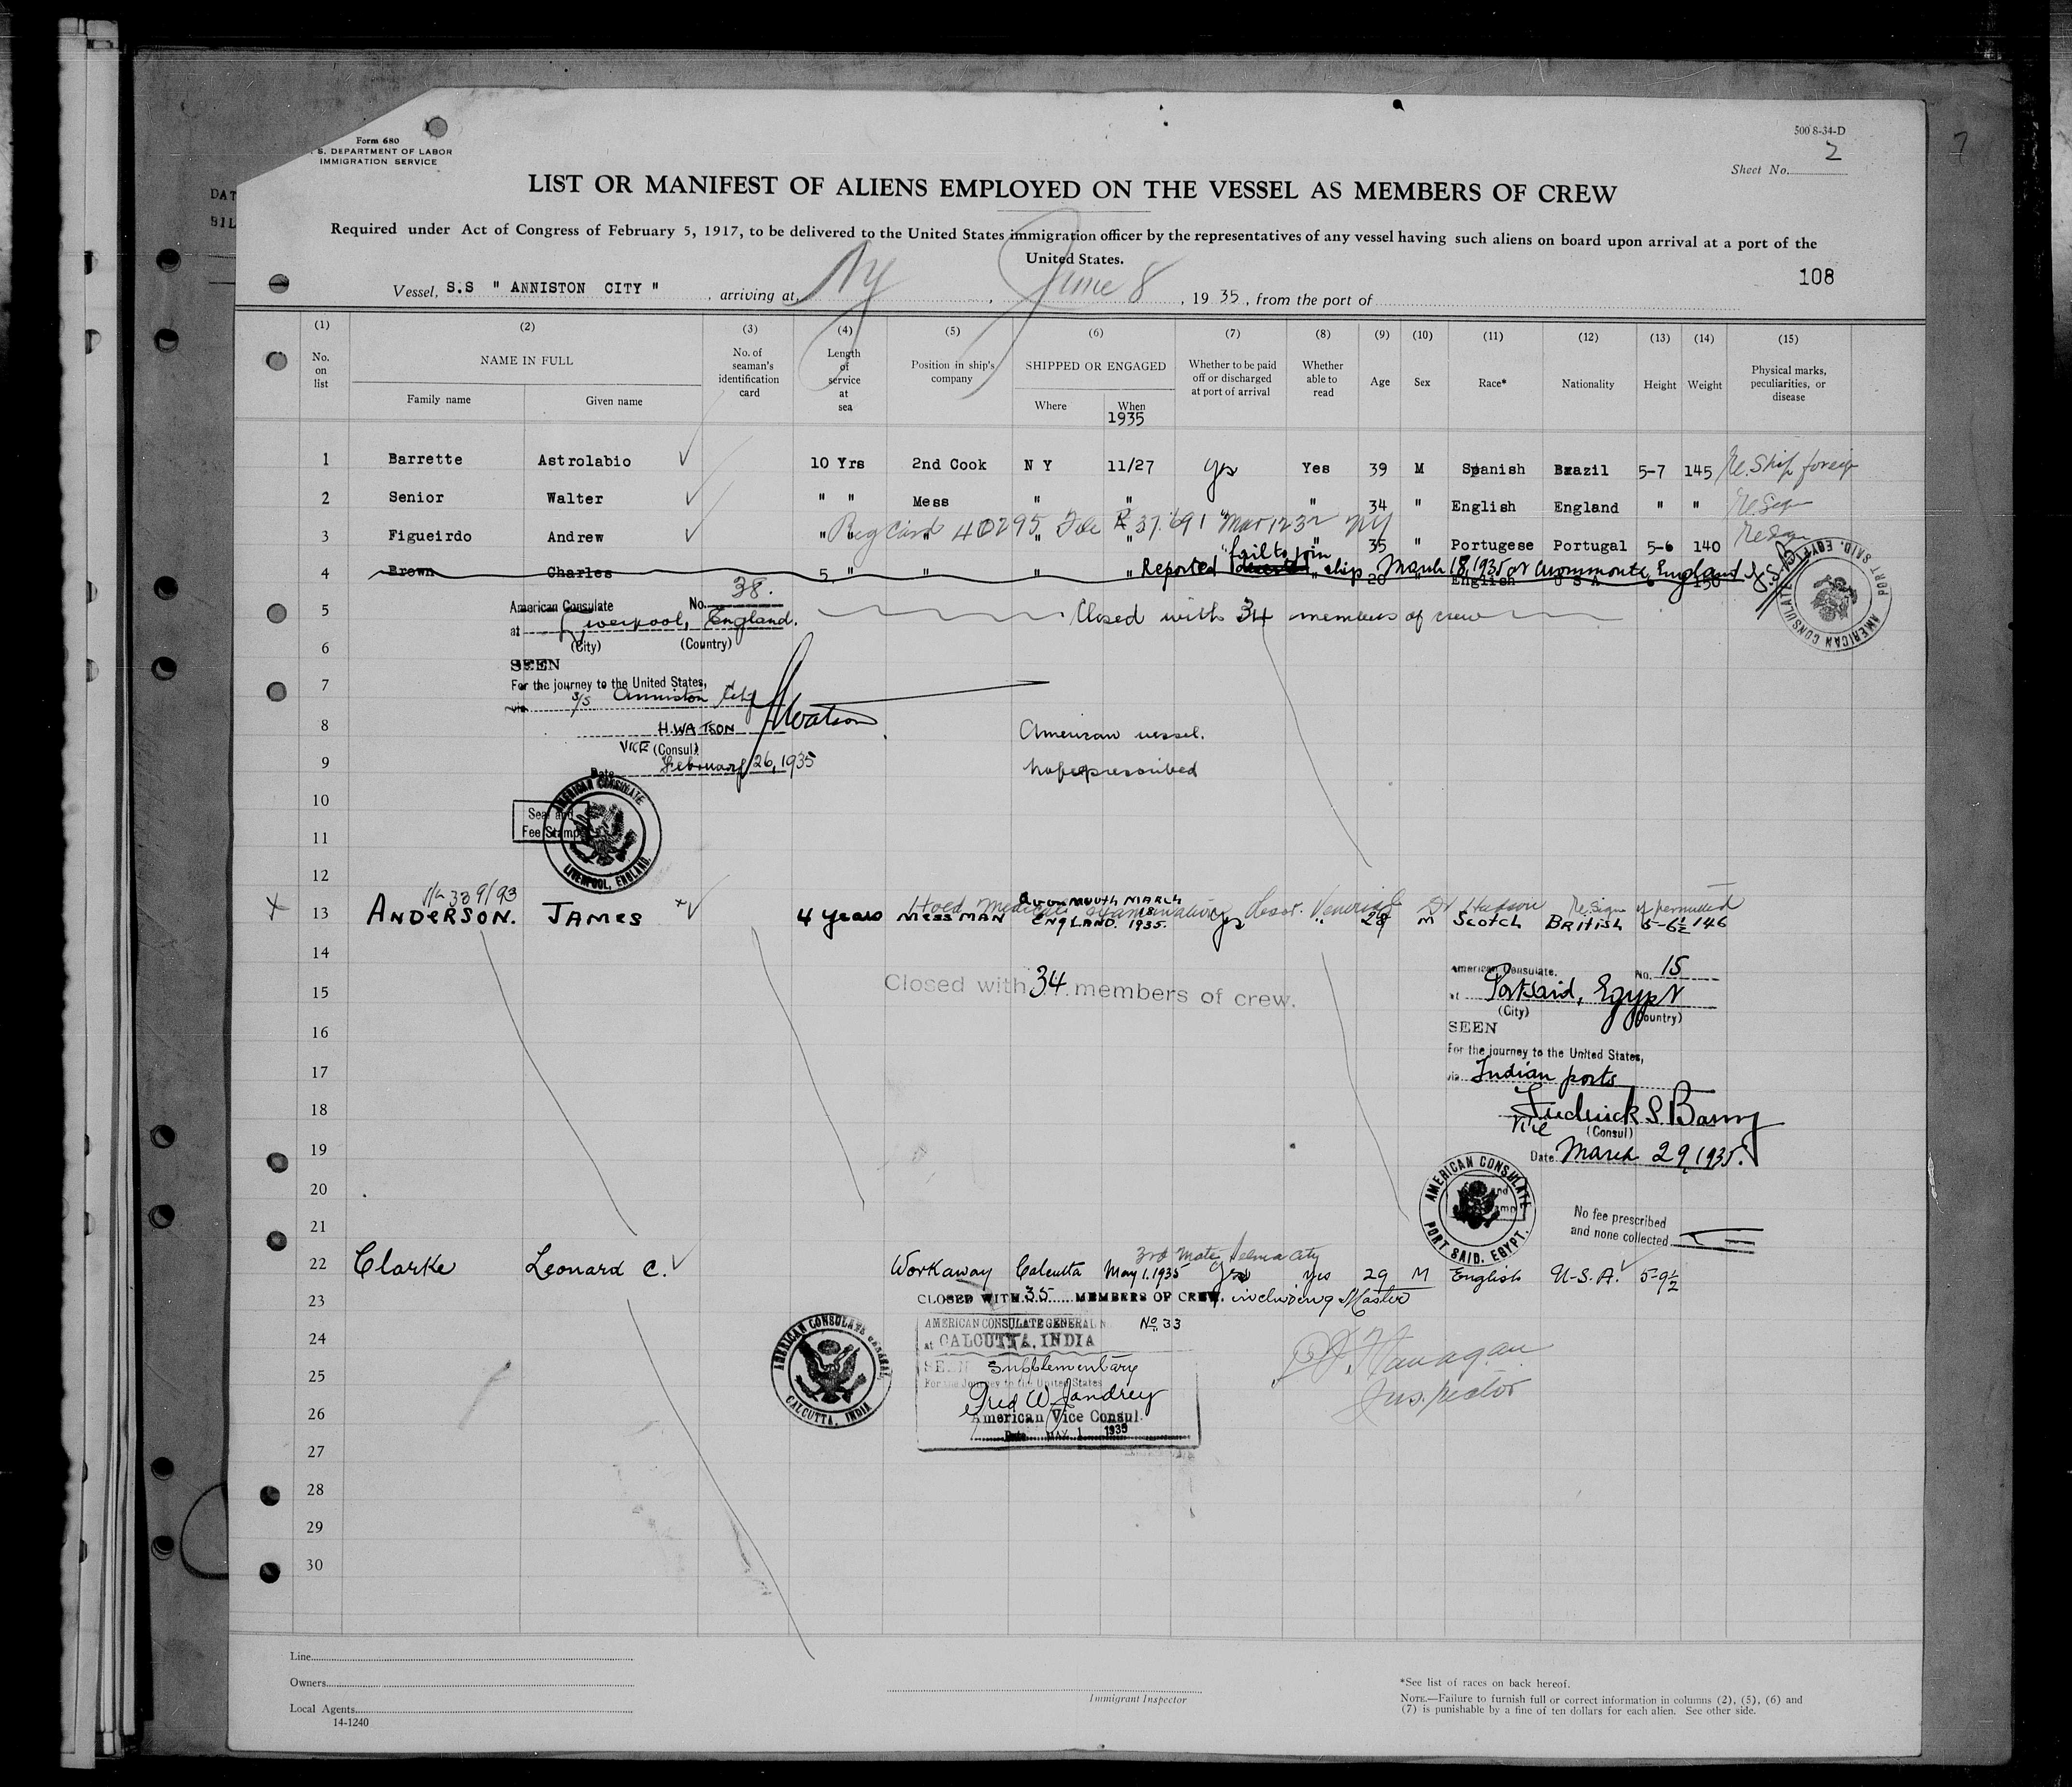 Form 680
S. DEPARTMENT OF LABOR
IMMIGRATION SERVICE
500 8-34-D
Sheet No. 2
LIST OR MANIFEST OF ALIENS EMPLOYED ON THE VESSEL AS MEMBERS OF CREW
Required under Act of Congress of February 5, 1917, to be delivered to the United States immigration officer by the representatives of any vessel having such aliens on board upon arrival at a port of the
United States.
108
Vessel, S.S " ANNISTON CITY " , arriving at, NY , June 8 , 19 35, from the port of
(1) (2) (3) (4) (5) (6) (7) (8) (9) (10) (11) (12) (13) (14) (15)
No. on list NAME IN FULL Family name Given name No. of seaman's identification card Length of service at sea Position in ship's company SHIPPED OR ENGAGED Where When 1935 Whether to be paid off or discharged at port of arrival Whether able to read Age Sex Race* Nationality Height Weight Physical marks, peculiarities, or disease
1 Barrette Astrolabio 10 Yrs 2nd Cook N Y 11/27 Yes Yes 39 M Spanish Brazil 5-7 145 Re. Ship foreign
2 Senior Walter " " Mess " " " 34 " English England " " Re Sign
Reg Card 40295 37691 Mar 12 32 NY
3 Figueirdo Andrew " " " " " 35 " Portugese Portugal 5-6 140 Re Sign
Reported fail to join ship March 18, 1935 at Avonmouth, England
4 Brown Charles 5 " " " " 20 " English U S A 150
American Consulate No. 38.
at Liverpool, England.
(City) (Country)
5 Closed with 34 members of crew
PORT SAID, EGYPT. AMERICAN CONSULATE
6
SEEN
7 For the journey to the United States,
via S/S Anniston City
8 H. WATSON HWatson American vessel.
VICE (Consul)
9 Date February 26, 1935 No fee prescribed
10
Seal and
Fee Stamp
AMERICAN CONSULATE LIVERPOOL, ENGLAND.
11
12
339/93
Hold Medical examination Venereal Dr Hudson Re Sign if permitted
13 ANDERSON. JAMES 4 years MESSMAN AVONMOUTH ENGLAND. MARCH 18 1935. Yes " 28 M Scotch BRITISH 5-6½ 146
14
American Consulate. No. 15
15 Closed with 34 members of crew.
at Port Said, Egypt
(City) (Country)
16 SEEN
For the journey to the United States,
17 via Indian ports
18 Frederick S. Barry
Vice (Consul)
19 Date March 29, 1935.
20
AMERICAN CONSULATE PORT SAID. EGYPT.
21
No fee prescribed
and none collected
3rd Mate Selma City
22 Clarke Leonard C. Workaway Calcutta May 1. 1935 yes yes 29 M English U-S.A. 5-9½
23 CLOSED WITH 35 MEMBERS OF CREW. including Master
AMERICAN CONSULATE GENERAL No 33
24 at CALCUTTA, INDIA
SEEN Supplementary
25 For the Journey to the United States
Fred W. Jandrey
26 American Vice Consul.
Date MAY 1 1935
AMERICAN CONSULATE GENERAL CALCUTTA, INDIA
Flanagan
Inspector
27
28
29
30
Line
Owners
Local Agents
14-1240
Immigrant Inspector
*See list of races on back hereof.
NOTE.—Failure to furnish full or correct information in columns (2), (5), (6) and
(7) is punishable by a fine of ten dollars for each alien. See other side.